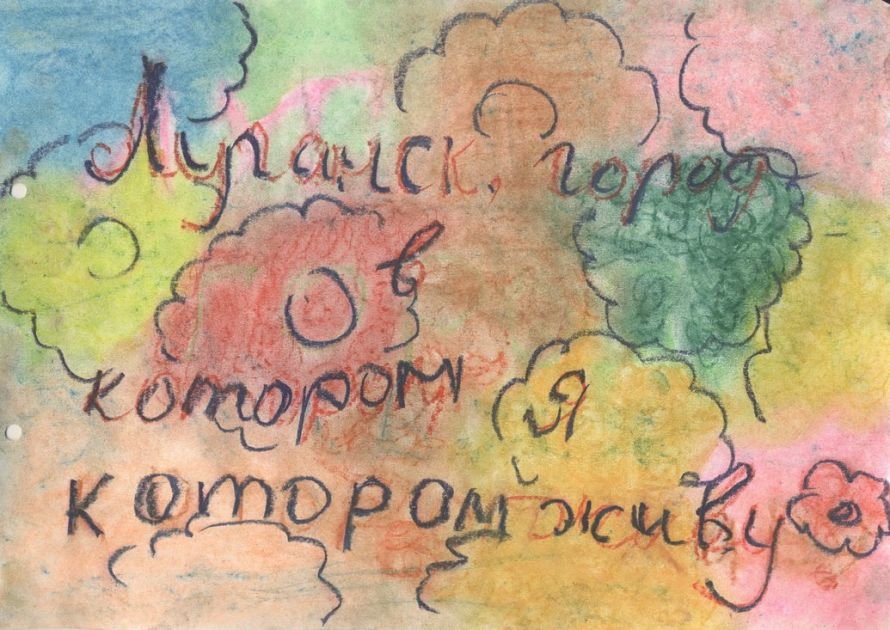 Луганск, город
в
котором я
котором живу